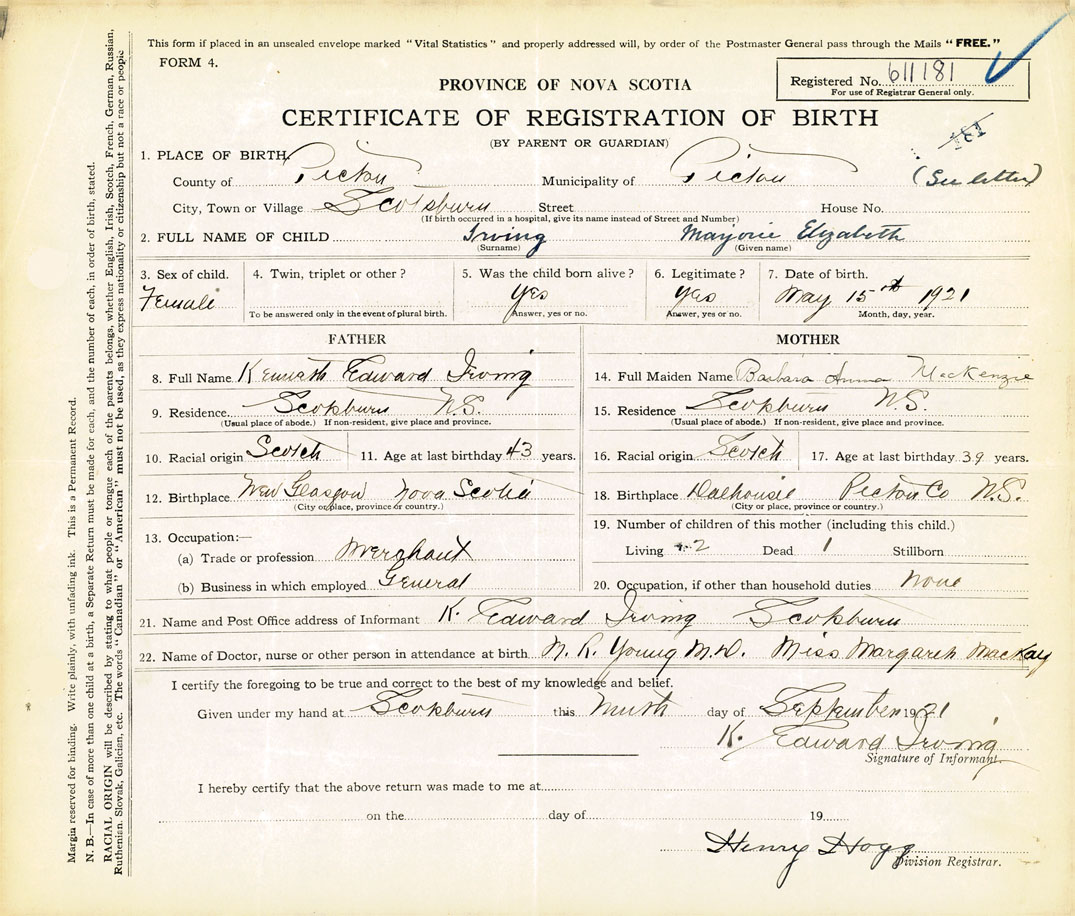 This form if placed in an unsealed envelope marked "Vital Statistics" and properly addressed will, by order of the Postmaster General pass through the Mails "FREE."
FORM 4.
PROVINCE OF NOVA SCOTIA
Registered No. 611181
For use of Registrar General only.
CERTIFICATE OF REGISTRATION OF BIRTH
181
(BY PARENT OR GUARDIAN)
(See letter)
1. PLACE OF BIRTH.
County of Pictou Municipality of Pictou
City, Town or Village Scotsburn Street House No.
(If birth occurred in a hospital, give its name instead of Street and Number)
2. FULL NAME OF CHILD Irving Marjorie Elizabeth
(Surname) (Given name)
3. Sex of child. Female
4. Twin, triplet or other?
To be answered only in the event of plural birth.
5. Was the child born alive? Yes
Answer, yes or no.
6. Legitimate? Yes
Answer, yes or no.
7. Date of birth. May 15th 1921
Month, day, year.
FATHER
8. Full Name Kenneth Edward Irving
9. Residence Scotsburn N.S.
(Usual place of abode.) If non-resident, give place and province.
10. Racial origin Scotch 11. Age at last birthday 43 years.
12. Birthplace New Glasgow Nova Scotia
(City or place, province or country.)
13. Occupation:—
(a) Trade or profession Merchant
(b) Business in which employed General
MOTHER
14. Full Maiden Name Barbara Anna MacKenzie
15. Residence Scotsburn N.S.
(Usual place of abode.) If non-resident, give place and province.
16. Racial origin Scotch 17. Age at last birthday 39 years.
18. Birthplace Dalhousie Pictou Co N.S.
(City or place, province or country.)
19. Number of children of this mother (including this child.)
Living 2 Dead 1 Stillborn
20. Occupation, if other than household duties none
21. Name and Post Office address of Informant K. Edward Irving Scotsburn
22. Name of Doctor, nurse or other person in attendance at birth M. R. Young M.D. Miss Margaret MacKay
I certify the foregoing to be true and correct to the best of my knowledge and belief.
Given under my hand at Scotsburn this ninth day of September 1921
K. Edward Irving
Signature of Informant.
I hereby certify that the above return was made to me at
on the day of 19
Henry Hogg
Division Registrar.
Margin reserved for binding. Write plainly, with unfading ink. This is a Permanent Record.
N. B.—In case of more than one child at a birth, a Separate Return must be made for each, and the number of each, in order of birth, stated.
RACIAL ORIGIN will be described by stating to what people or tongue each of the parents belongs, whether English, Irish, Scotch, French, German, Russian,
Ruthenian, Slovak, Galician, etc. The words "Canadian" or "American" must not be used, as they express nationality or citizenship but not a race or people